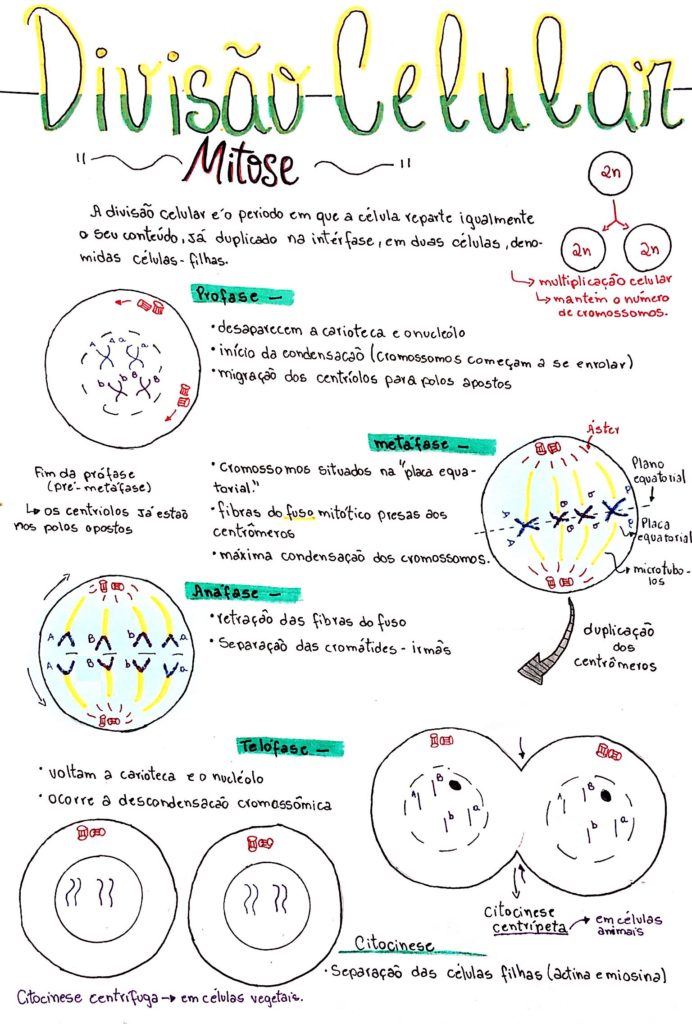 Divisão Celular
"Mitose"
A divisão celular é o periodo em que a célula reparte igualmente
o seu conteúdo, já duplicado na intérfase, em duas células, deno-
midas células-filhas.
2n
2n 2n
↳ multiplicação celular
↳ mantém o número
de cromossomos.
Prófase -
• desaparecem a carioteca e o nucléolo
• início da condensação (cromossomos começam a se enrolar)
• migração dos centríolos para polos apostos
A A a a
b b B B
Fim da prófase
(pré-metáfase)
↳ os centriolos já estão
nos polos apostos
metáfase -
• cromossomos situados na "placa equa-
torial."
• fibras do fuso mitótico presas aos
centrômeros
• máxima condensação dos cromossomos.
Áster
Plano
equatorial
Placa
equatorial
→ microtubo-
los
duplicação
dos
centrômeros
Anáfase -
• retração das fibras do fuso
• Separação das cromátides-irmãs
A B b a
A B b a
Telófase -
• voltam a carioteca e o nucléolo
• ocorre a descondensacão cromossômica
A B b a
A B b a
Citocinese
centrípeta → em células
animais
Citocinese
• Separação das células filhas (actina e miosina)
Citocinese centrífuga → em células vegetais.